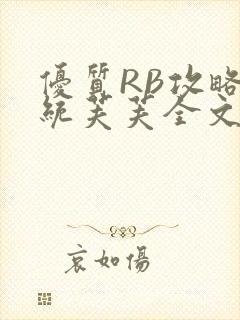 優質RB攻略
統芙芙全文
哀如傷